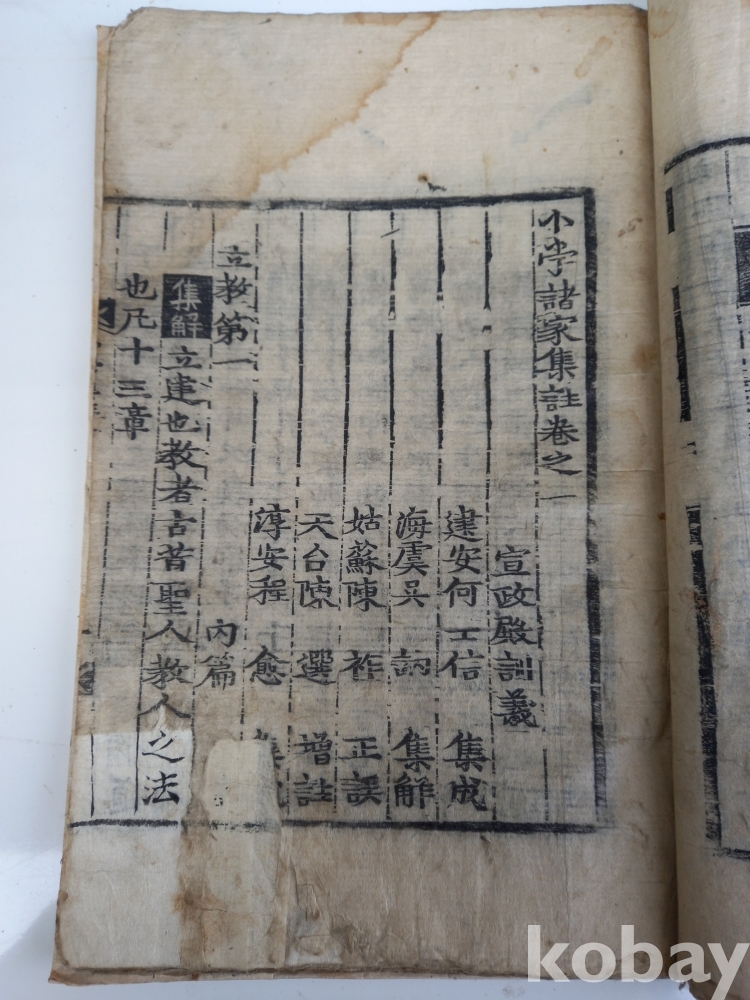 小学諸家集註卷之一
宣政殿訓義
建安何士信 集成
海虞吳 訥 集解
姑蘇陳 祚 正誤
天台陳 選 增註
淳安程 愈
內篇
立教第一
集解 立建也教者古昔聖人教人之法
也凡十三章
kobay